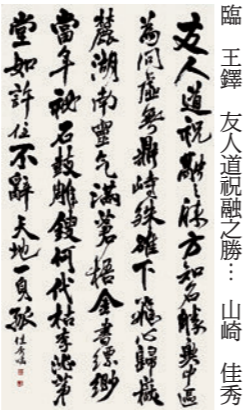 臨　王鐸　友人道祝融之勝…　山崎　佳秀
友人道祝融之勝方知名勝異中區
為問虛無鼎峙殊雄下飛心歸嶽
麓湖南靈氣滿蒼梧金書縹緲
當年祕石鼓雕鎪何代枯李泌第
堂如許住不辭天地一身孤